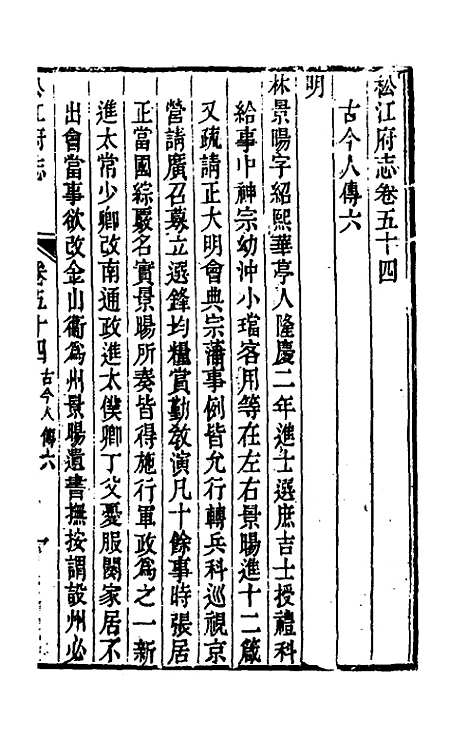 松江府志卷五十四
古今人傳六
明
林景暘字紹熙華亭人隆慶二年進士選庶吉士授禮科
給事中神宗幼沖小璫客用等在左右景暘進十二箴
又疏請正大明會典宗藩事例皆允行轉兵科巡視京
營請廣召募立選鋒均糧賞勤教演凡十餘事時張居
正當國綜覈名實景暘所奏皆得施行軍政爲之一新
進太常少卿改南通政進太僕卿丁父憂服闋家居不
出會當事欲改金山衞爲州景暘遺書撫按謂設州必
松江府志
卷五十四
古今人傳六